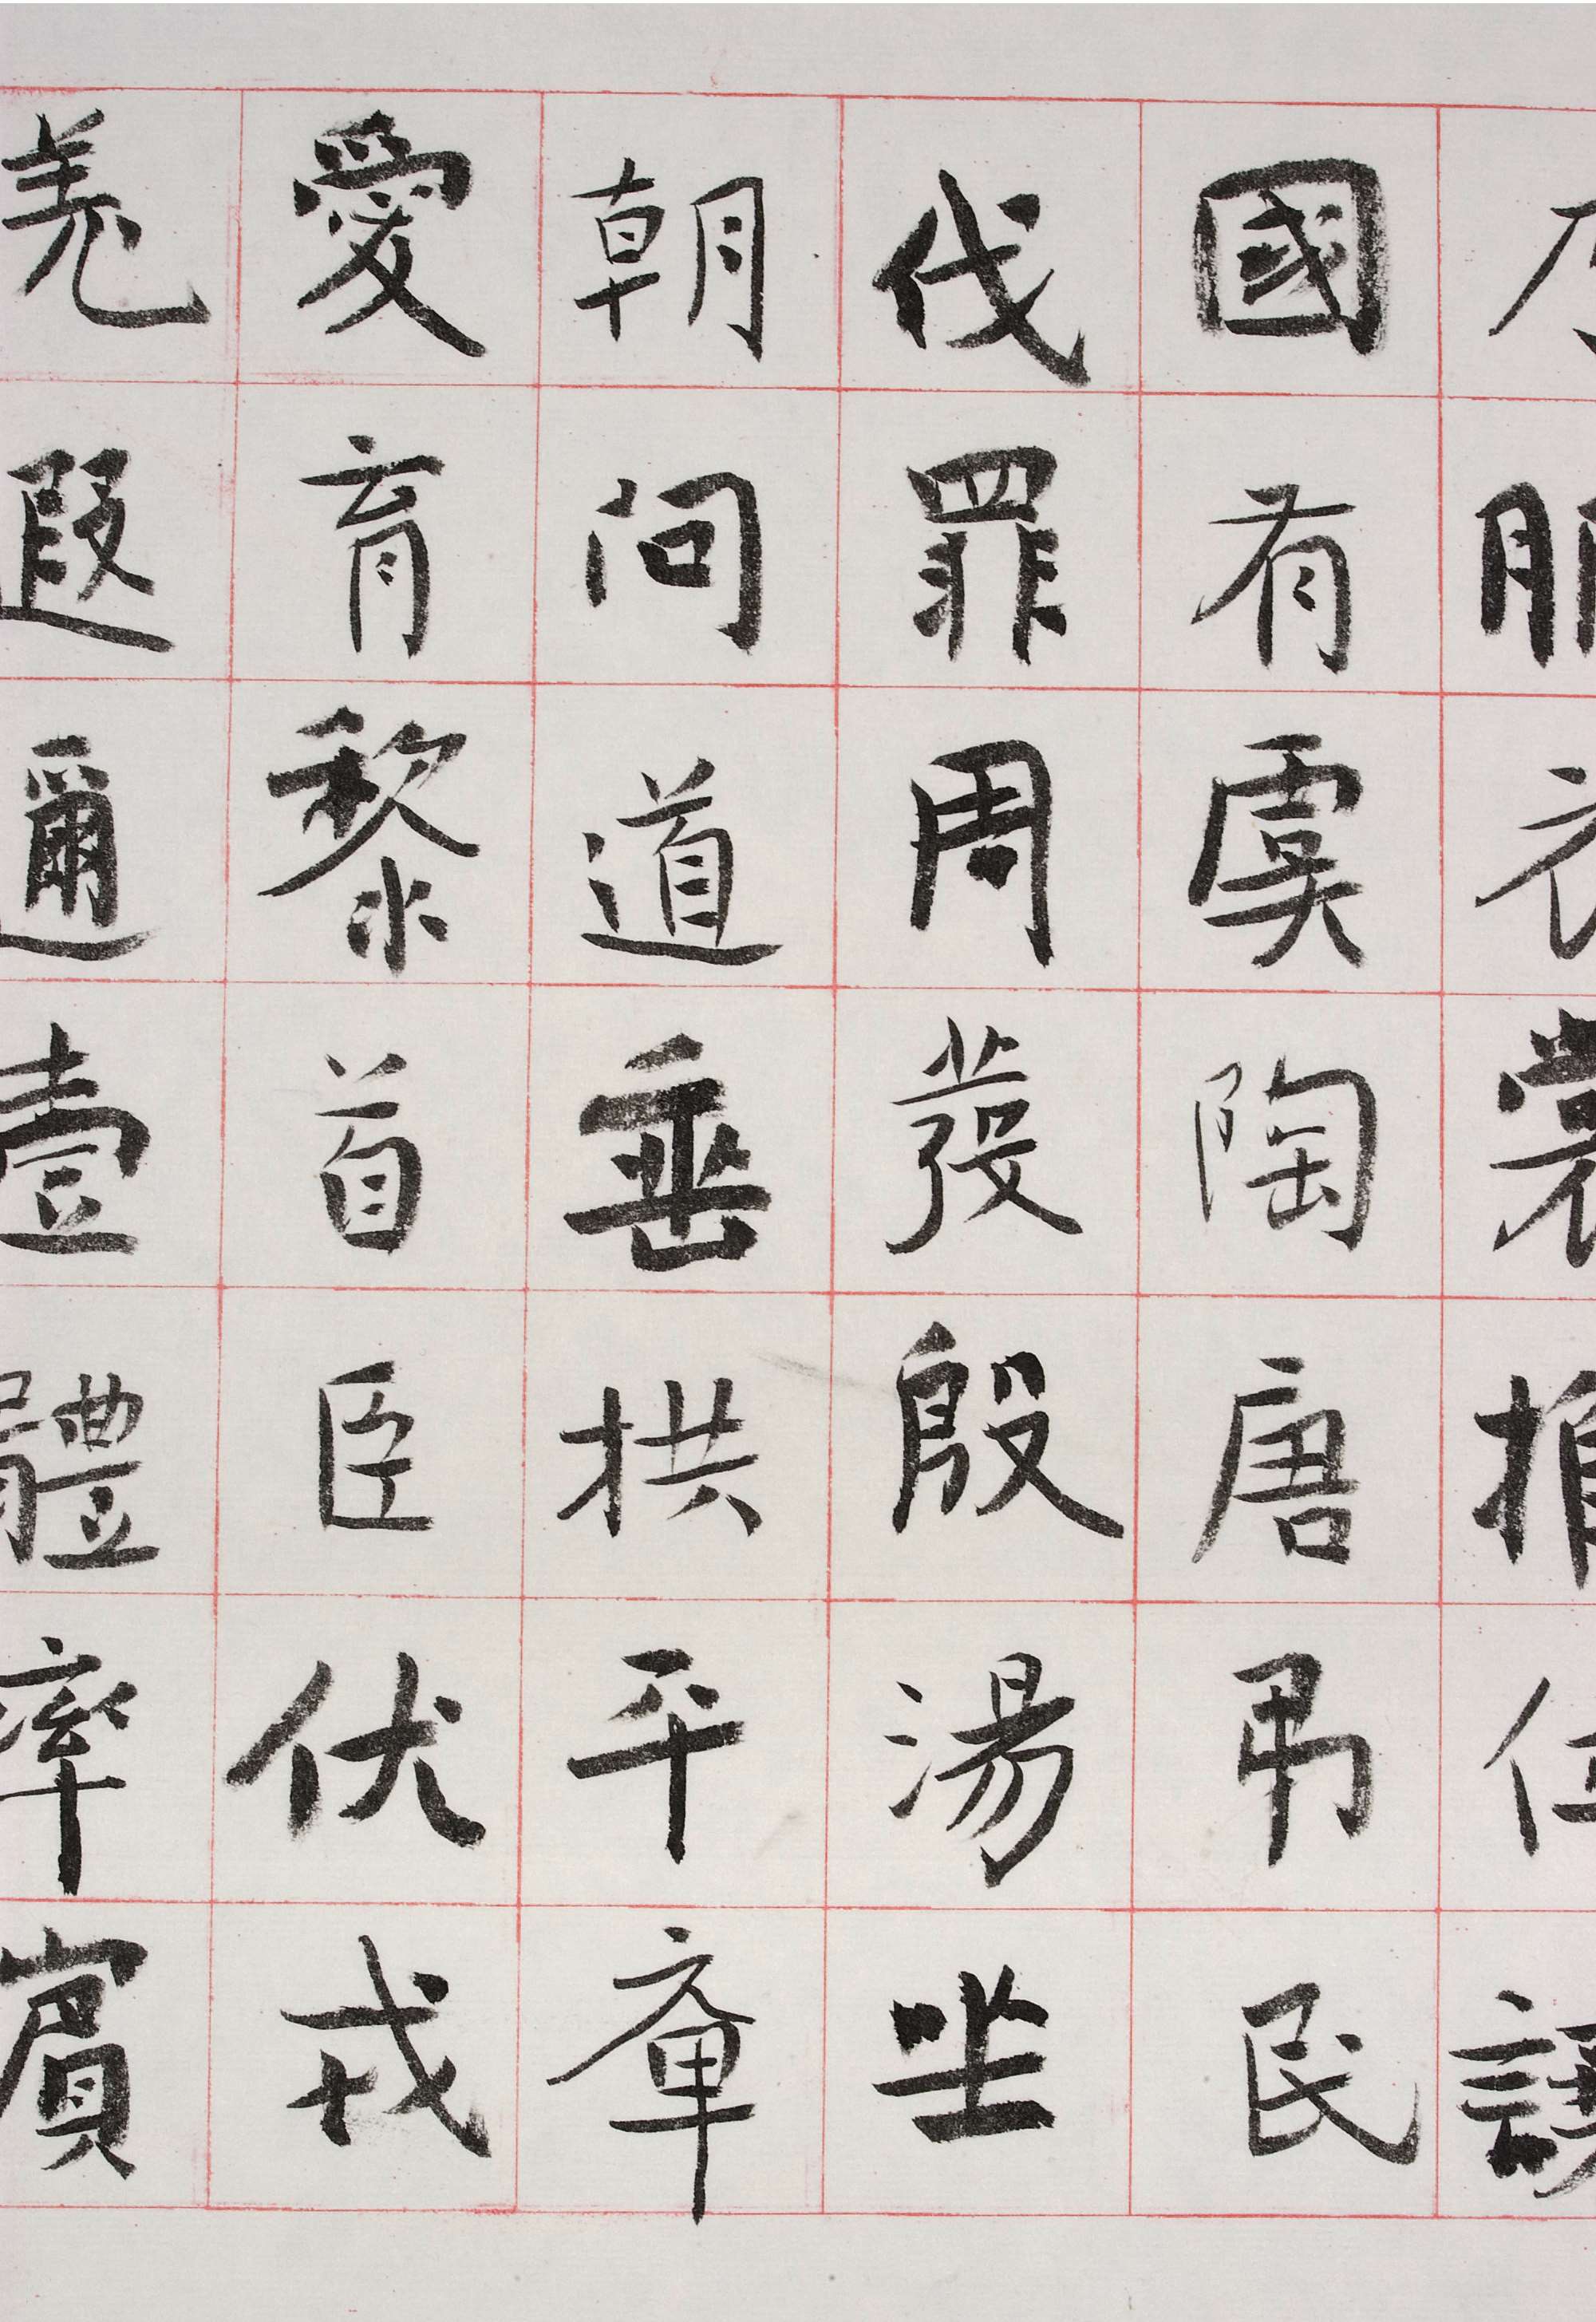 乃服衣裳推位讓
國有虞陶唐弔民
伐罪周發殷湯坐
朝問道垂拱平章
愛育黎首臣伏戎
羌遐邇壹體率賓